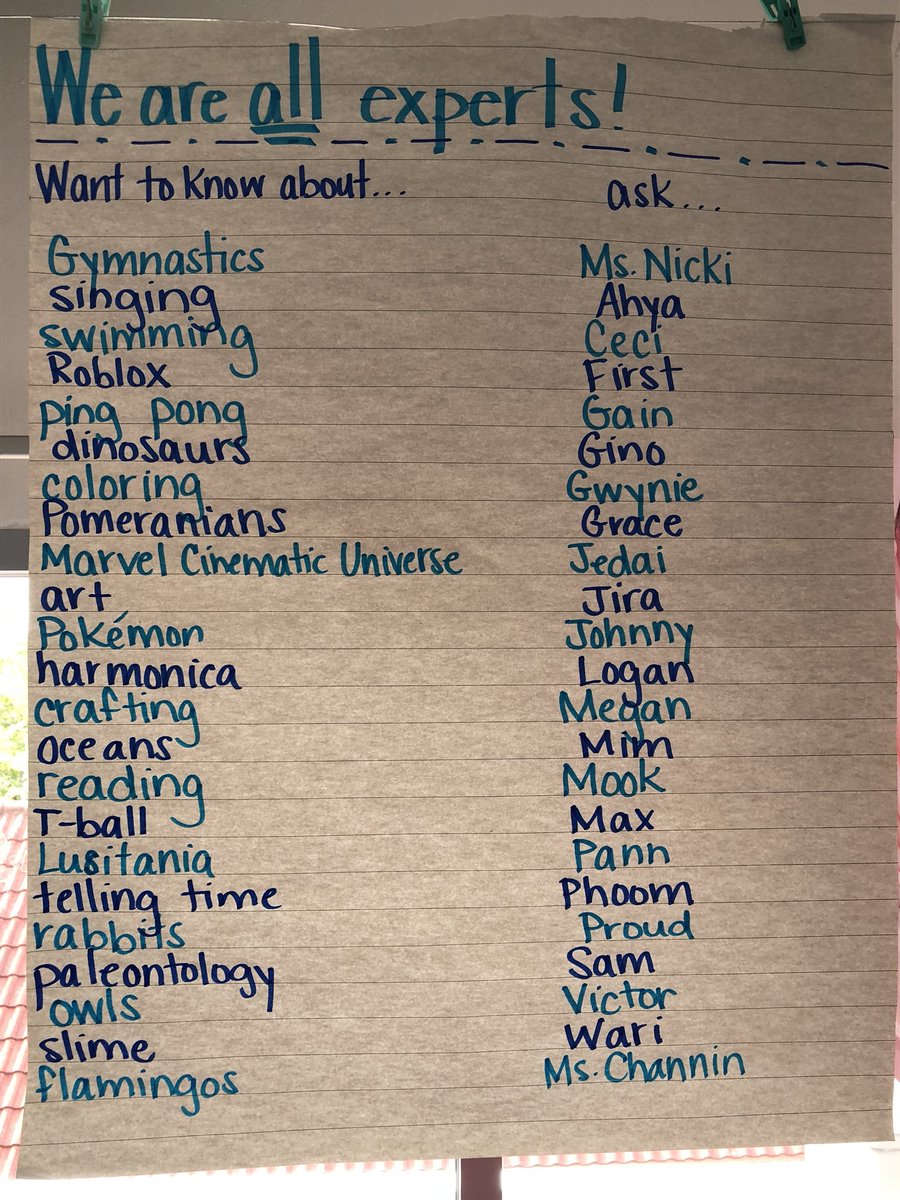 We are all experts!
Want to know about... ask...
Gymnastics Ms. Nicki
singing Ahya
swimming Ceci
Roblox First
ping pong Gain
dinosaurs Gino
coloring Gwynie
Pomeranians Grace
Marvel Cinematic Universe Jedai
art Jira
Pokémon Johnny
harmonica Logan
crafting Megan
oceans Mim
reading Mook
T-ball Max
Lusitania Pann
telling time Phoom
rabbits Proud
paleontology Sam
owls Victor
slime Wari
flamingos Ms. Channin